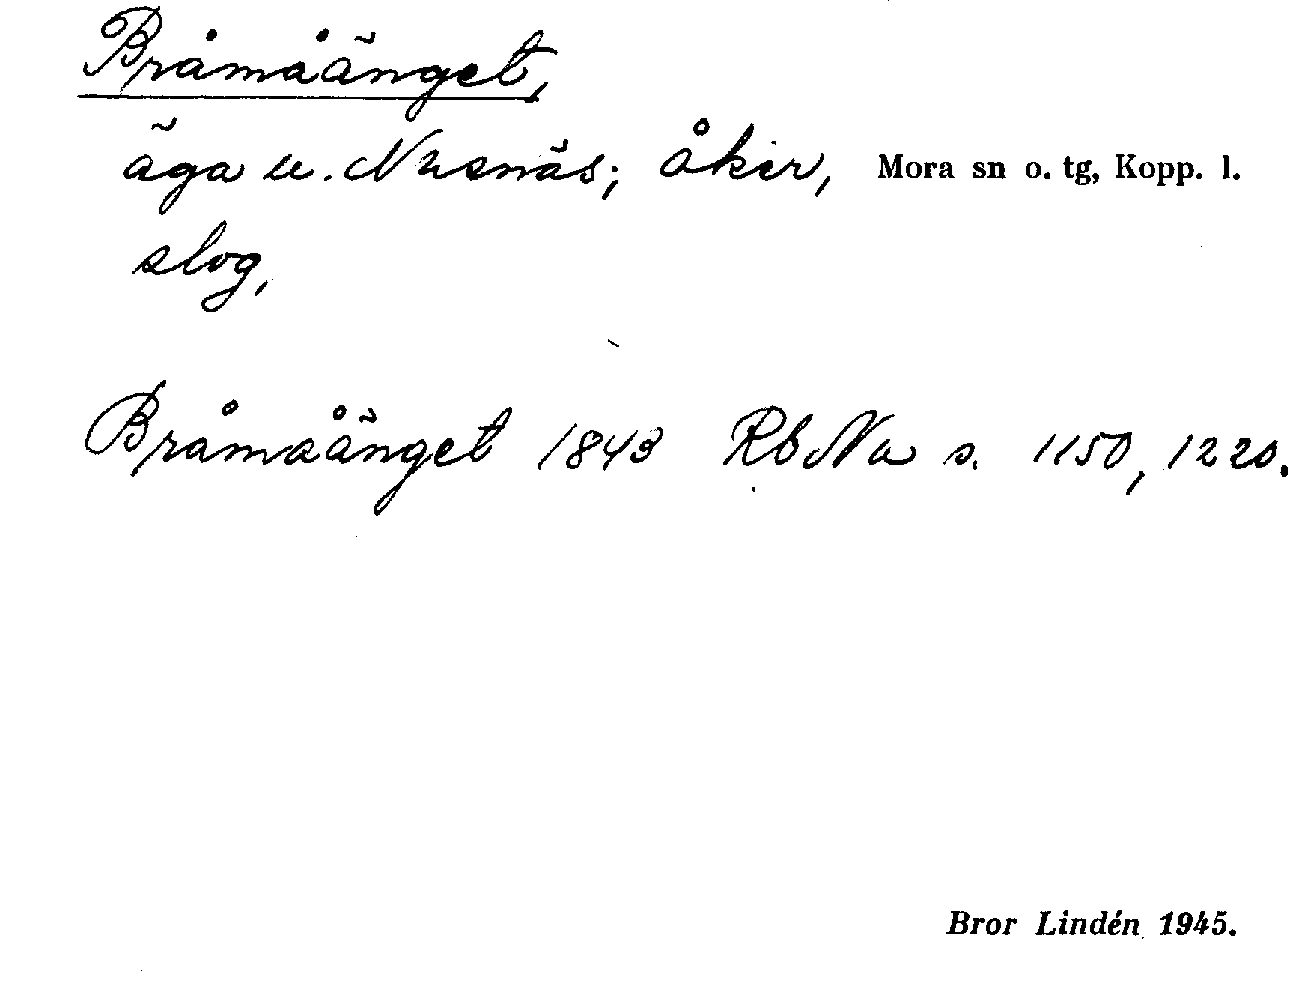 Bråmåänget,
äga u. Nusnäs; åker, Mora sn o. tg, Kopp. l.
slog,
Bråmåänget 1843 Rb Na s. 1150, 1220.
Bror Lindén 1945.